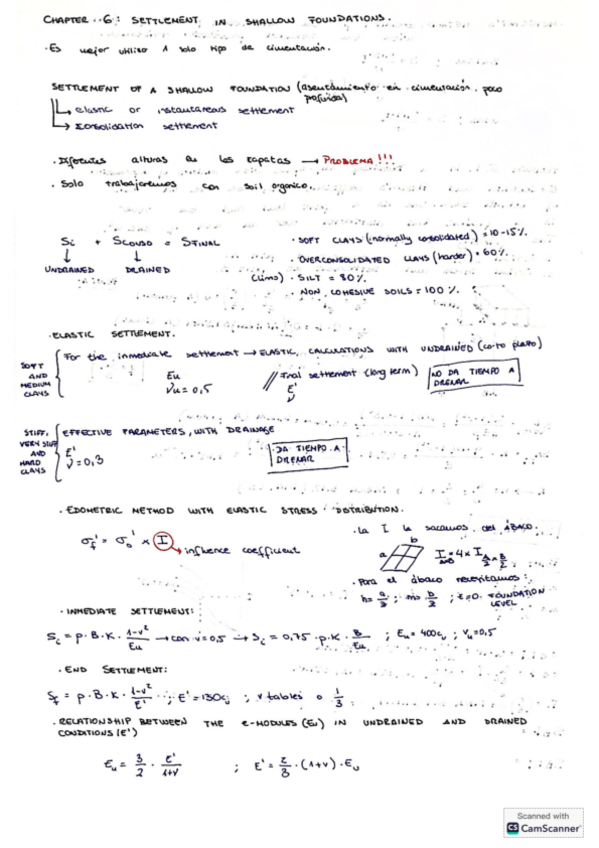 CHAPTER 6: SETTLEMENT IN SHALLOW FOUNDATIONS.
· Es mejor utilizar 1 solo tipo de cimentación.
SETTLEMENT OF A SHALLOW FOUNDATION (asentamiento en cimentación poco profunda)
→ elastic or instantaneous settlement
→ Consolidation settlement
· Diferentes alturas en las zapatas → PROBLEMA!!!
· Solo trabajaremos con soil organico.
Si + Sconso = Sfinal
↓ ↓
UNDRAINED DRAINED
· SOFT CLAYS (normally consolidated) = 10-15%
· OVERCONSOLIDATED CLAYS (harder) = 60%
(Limo) · SILT = 80%
· NON COHESIVE SOILS = 100%
· ELASTIC SETTLEMENT.
SOFT AND MEDIUM CLAYS
For the inmediate settlement → ELASTIC, CALCULATIONS WITH UNDRAINED (corto plazo)
Eu
νu = 0,5
// Final settlement (long term)
E'
ν
NO DA TIEMPO A DRENAR
STIFF, VERY STIFF AND HARD CLAYS
EFFECTIVE PARAMETERS, WITH DRAINAGE
E'
ν = 0,3
DA TIEMPO A DRENAR
· EDOMETRIC METHOD WITH ELASTIC STRESS DISTRIBUTION.
σf' = σo' × I
→ influence coefficient
· La I la sacamos del ÁBACO.
b
a
I = 4 × I A/2 × B/2
· Para el ábaco necesitamos:
n = a/z ; m = b/z ; z = 0 FOUNDATION LEVEL
· INMEDIATE SETTLEMENT:
Si = p · B · K · (1-ν²)/Eu → con ν = 0,5 → Si = 0,75 · p · K · B/Eu ; Eu = 400cu ; νu = 0,5
· END SETTLEMENT:
Sf = p · B · K · (1-ν²)/E' ; E' = 130cu ; ν tables o 1/3
· RELATIONSHIP BETWEEN THE E-MODULES (Eu) IN UNDRAINED AND DRAINED CONDITIONS (E')
Eu = 3/2 · E'/(1+ν) ; E' = 2/3 · (1+ν) · Eu
Scanned with
CS CamScanner